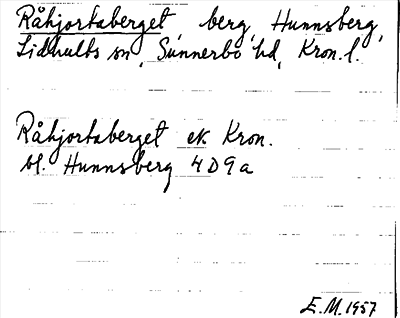 Råhjortaberget, berg, Hunnsberg,
Lidhults sn, Sunnerbo hd, Kron. l.
Råhjortaberget ek Kron.
bl. Hunnsberg 4D9a
E.M. 1957